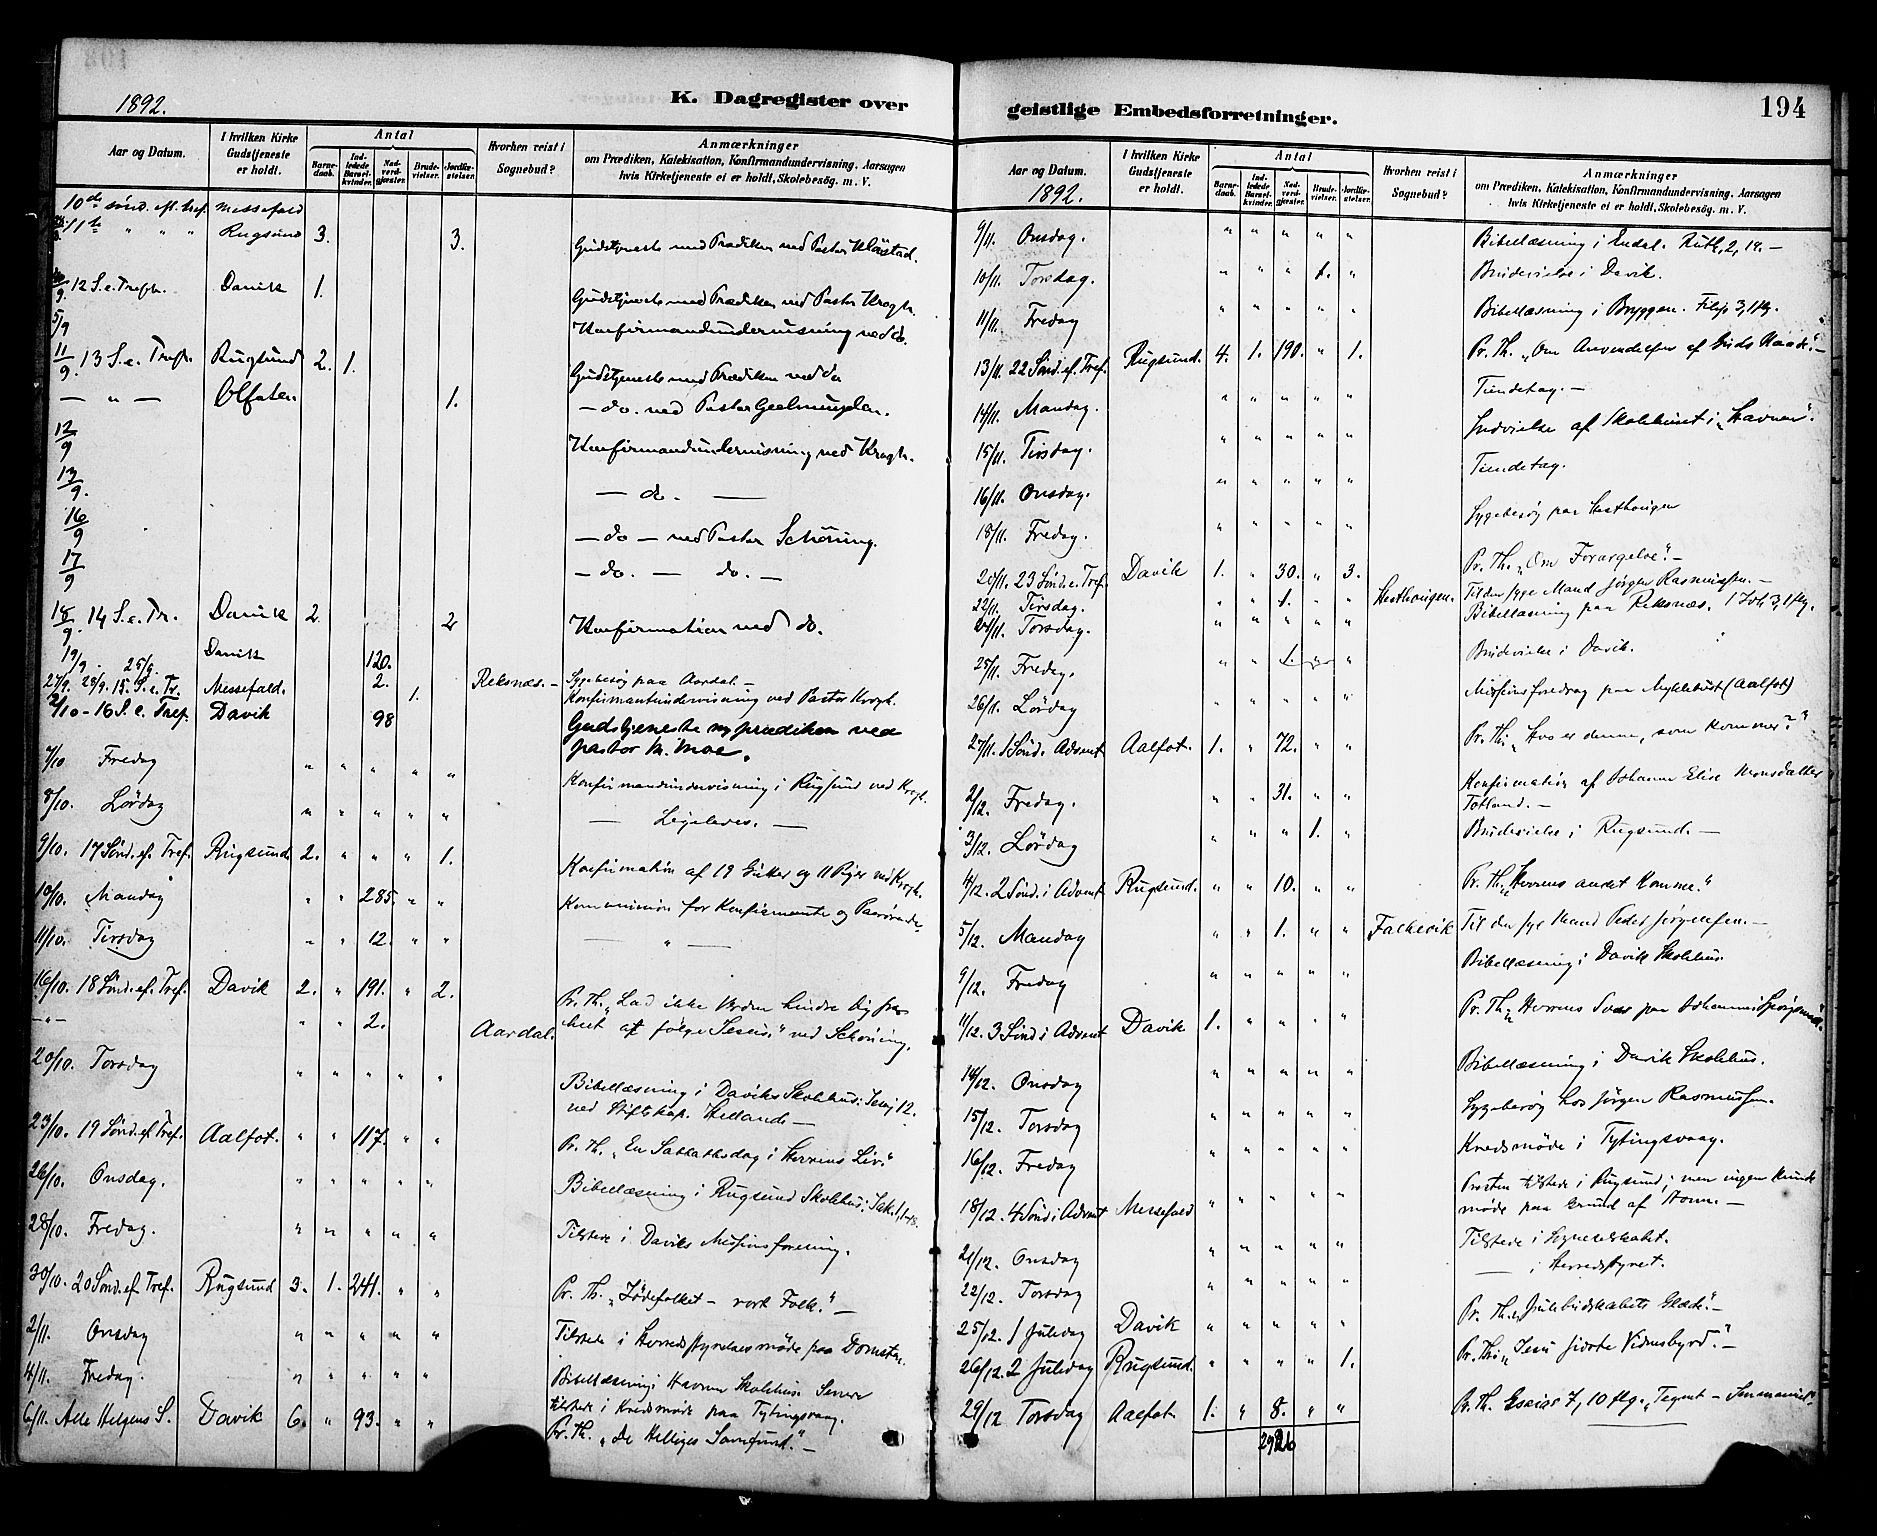 1892.
K. Dagregister over
Aar og Datum.
I hvilken Kirke Gudstjeneste er holdt.
Antal
Barne-daab.
Ind-ledede Barsel-kvinder.
Nad-verd-gjæster.
Brude-vielser.
Jordfæ-stelser.
Hvorhen reist i Sognebud?
Anmærkninger
om Prædiken, Katekisation, Konfirmandundervisning, Aarsagen
hvis Kirketjeneste ei er holdt, Skolebesøg. m. V.
10de sönd. eft. tref. Messefald
11te " " " Rugsund 3. 3. Gudstjeneste med Prædiken ved Pastor Klåstad.
12 S. e. Trefh. Davik 1. Gudstjeneste med Prædiken ved Pastor Krogh.
5/9 Konfirmandundervisning ved do.
11/9. 13 S. e. Trefh. Rugsund 2. 1. Gudstjeneste med Prædiken ved do
— " — Olfoten 1. — do. ved Pastor Geelmuyden.
12/9 Konfirmandundervisning ved Krogh.
13/9. — do. —
16/9 — do — ved Pastor Schøning.
17/9 — do. — do. —
18/9. 14 S. e. Tr. Davik 2. 2 Konfirmation ved do.
19/9. Davik 120.
25/9.
27/9. 28/9. 15. S. e. Tr. Messefald. 2. 1. Reksnæs. — Sygebesøg paa Aardal. —
Konfirmantundervisning ved Pastor Krogh.
2/10 - 16 S. e. Tref. Davik 98 Gudstjeneste m prædiken ved
pastor M. Moe.
7/10 Fredag " " " " " Konfirmandundervisning i Rugsund ved Krogh.
8/10. Lørdag " " " " " — Ligeledes. —
9/10. 17 Sønd. ef. Tref. Rugsund. 2. " " " 1. Konfirmation af 19 Gutter og 11 Piger ved Krogh.
10/10. Mandag " " 285. " " Kommunion for Konfirmanter og Paarørende.
11/10. Tirsdag " " 12. " " — " —
16/10. 18 Sønd. ef. Tref. Davik 2. " 191. " 2. Pr. Th. „Lad ikke Verden hindre Dig fra
—"— " " 2. Aardal. at følge Jesus." ved Schøning.
20/10. Torsdag " " " " " Bibellæsning i Daviks Skolehus: 12.
ved Stiftskap. Hellands —
23/10. 19 Sønd. ef. Tref. Aalfot. " " 117. " " Pr. Th. „En Sabbathsdag i Herrens Liv."
26/10. Onsdag. " " " " " Bibellæsning i Rugsund Skolehus:
28/10. Fredag. " " " " " Tilstede i Daviks Missionsforening.
30/10. 20 Sønd. ef. Tref. Rugsund 3. 1. 241. " " Pr. Th. „Jødefolket — vort Folk." —
2/11. Onsdag " " " " " Tilstede i Herredsstyrelsesmøde paa
4/11. Fredag. " " " " " Bibellæsning i Skolehus. Senere
tilstede i Kredsmøde paa Tytingsvaag.
6/11. Alle Helgens S. Davik 6. " 93. " " Pr. Th. „De Helliges Samfund." —
geistlige Embedsforretninger.
194
Aar og Datum.
1892.
I hvilken Kirke Gudstjeneste er holdt.
Antal
Barne-daab.
Ind-ledede Barsel-kvinder.
Nad-verd-gjæster.
Brude-vielser.
Jordfæ-stelser.
Hvorhen reist i Sognebud?
Anmærkninger
om Prædiken, Katekisation, Konfirmandundervisning, Aarsagen
hvis Kirketjeneste ei er holdt, Skolebesøg. m. V.
9/11. Onsdag. " " " " " Bibellæsning i Endal. Ruth, 2, 19. —
10/11. Torsdag. " " " 1. " Brudevielse i Davik.
11/11. Fredag " " " " " Bibellæsning i Bryggen. Filip 3, 1 flg.
13/11. 22 Sønd. ef. Tref. Rugsund. 4. 1. 190. " 1. Pr. Th. „Om Anvendelsen af Guds Naade." —
14/11. Mandag. " " " " " Tiendetag. —
15/11. Tirsdag. " " " " " Indvielse af Skolehuset i „Havnen".
16/11. Onsdag. " " " " " Tiendetag.
18/11. Fredag. " " " " " Sygebesøg paa Hesthougen
20/11. 23 Sønd. e. Tref. Davik 1. " 30. " 3. Pr. Th. „Om Forargelse." —
22/11. Tirsdag. " " 1. " " Hesthougen. Til den syge Mand Jørgen Rasmussen. —
24/11. Torsdag. " " " " " Bibellæsning paa Reksnæs. 1 Joh 3, 1 flg.
25/11. Fredag. " " 1. " " Brudevielse i Davik.
26/11. Lørdag " " " " " Missionsforedrag paa Myklebust (Aalfot)
27/11. 1 Sønd. Advent Aalfot. 1. " 72. " " Pr. Th. „Hvo er denne, som kommer?"
2/12. Fredag. " " 31. " " Konfirmation af Johanne Elise Monsdatter
Totland. —
3/12. Lørdag " " " 1. " Brudevielse i Rugsund. —
4/12. 2 Sønd. i Advent Rugsund. " " 10. " " Pr. Th. „Herrens andet Komme."
5/12. Mandag " " 1. " " Falkevik Til den syge Mand Peder Jørgensen. —
9/12. Fredag " " " " " Bibellæsning i Davik Skolehus.
11/12. 3 Sønd i Advent Davik 1. " " " " Pr. Th. „Herrens Svar paa Johannis Spørgsmaal".
14/12. Onsdag " " " " " Bibellæsning i Davik Skolehus.
15/12. Torsdag " " " " " Sygebesøg hos Jørgen Rasmussen.
16/12. Fredag " " " " " Kredsmøde i Tytingsvaag.
18/12. 4 Sønd i Advent Messefald " " " " " Presten tilstede i Rugsund; men ingen kunde
møde paa Grund af Storm. —
21/12. Onsdag " " " " " Tilstede i Ligneselskabet.
22/12. Torsdag " " " " " — i Herredsstyret.
25/12. 1 Juledag Davik " " " " " Pr. Th. „Julebudskabets Glæde". —
26/12. 2 Juledag Rugsund. " " " " 1. Pr. Th. „Jesu første Vidnesbyrd." —
29/12 Torsdag Aalfot. 1. " 8. " " Pr. Th. Esaias 7, 10 flg. „Tegnet — Immanuel".